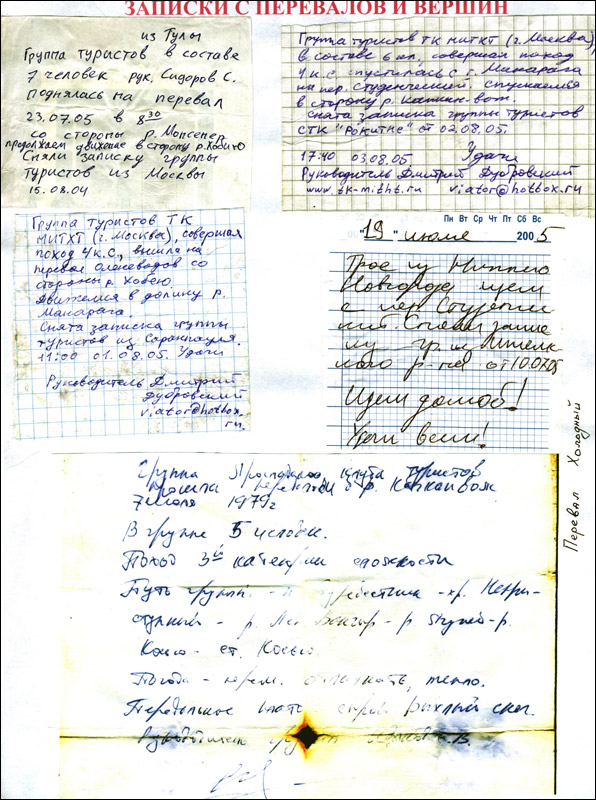 ЗАПИСКИ С ПЕРЕВАЛОВ И ВЕРШИН
из Тулы
Группа туристов в составе
7 человек рук. Сидоров С.
поднялась на перевал
23.07.05 в 8 30
со стороны р. Мансенер
продолжаем движение в сторону р. Ховею
Сняли записку группы
туристов из Москвы
15.08.04
Группа туристов ТК МИТХТ (г. Москва),
в составе 6 чел, совершая поход
4 к.с. спустилась с г. Манарага
на пер. Студенческий. Спускаемся
в сторону р. Капкан-вож.
Снята записка группы туристов
СТК "Рокитне" от 02.08.05.
17:40 03.08.05. Удачи
Руководитель Дмитрий Дубровский
www.tk-mitht.ru viator@hotbox.ru
Группа туристов ТК
МИТХТ (г. Москва), совершая
поход 4 к.с., вышла на
перевал Оленеводов со
стороны р. Ховею.
Движемся в долину р.
Манарага.
Снята записка группы
туристов из Саранпауля.
11:00 01.08.05. Удачи
Руководитель Дмитрий
Дубровский
viator@hotbox.
ru.
Пн Вт Ср Чт Пт Сб Вс
"19" июля 2005
Трое из Нижнего
Новгорода идем
с пер. Студенчес
кий. Сняли записку
гр. из
р-на от 10.07.05
Идем домой!
Удачи всем!
Перевал Холодный
Группа клуба туристов
прошла перевал р. Капкан вож
7 июля 1979г
В группе 5 человек.
Поход 3й категории сложности
Путь группы - хр. Непри-
ступный - р.
Косью - ст. Косью.
Погода - перем. облачность, тепло.
рыхлый снег.
Руководитель группы